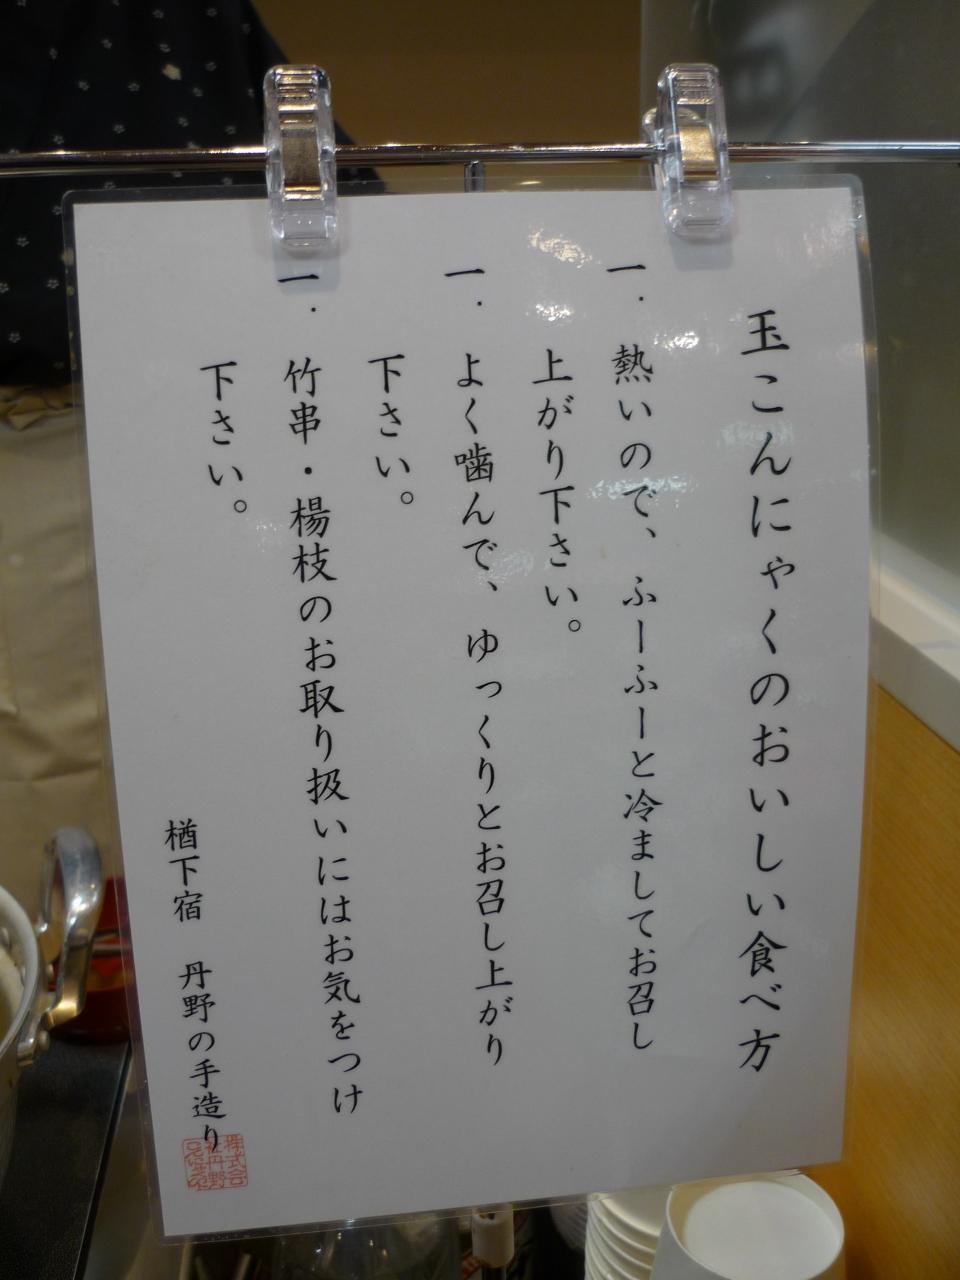 玉こんにゃくのおいしい食べ方
一．熱いので、ふーふーと冷ましてお召し
上がり下さい。
一．よく噛んで、ゆっくりとお召し上がり
下さい。
一．竹串・楊枝のお取り扱いにはお気をつけ
下さい。
楢下宿　丹野の手造り
株式会
社丹野